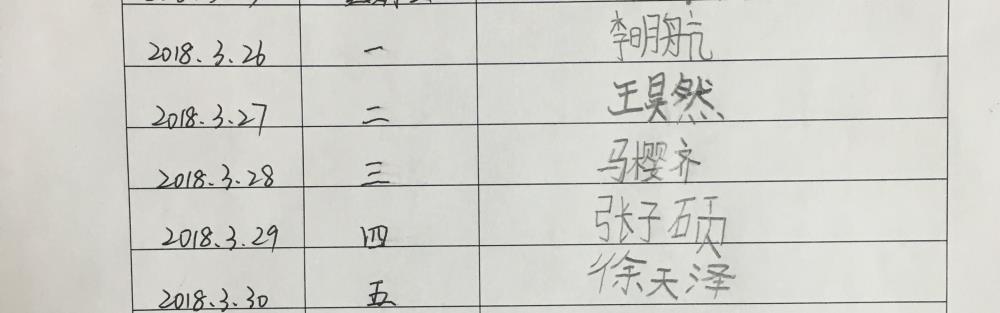 2018.3.26 一 李明航
2018.3.27 二 王昊然
2018.3.28 三 马樱齐
2018.3.29 四 张子硕
2018.3.30 五 徐天泽